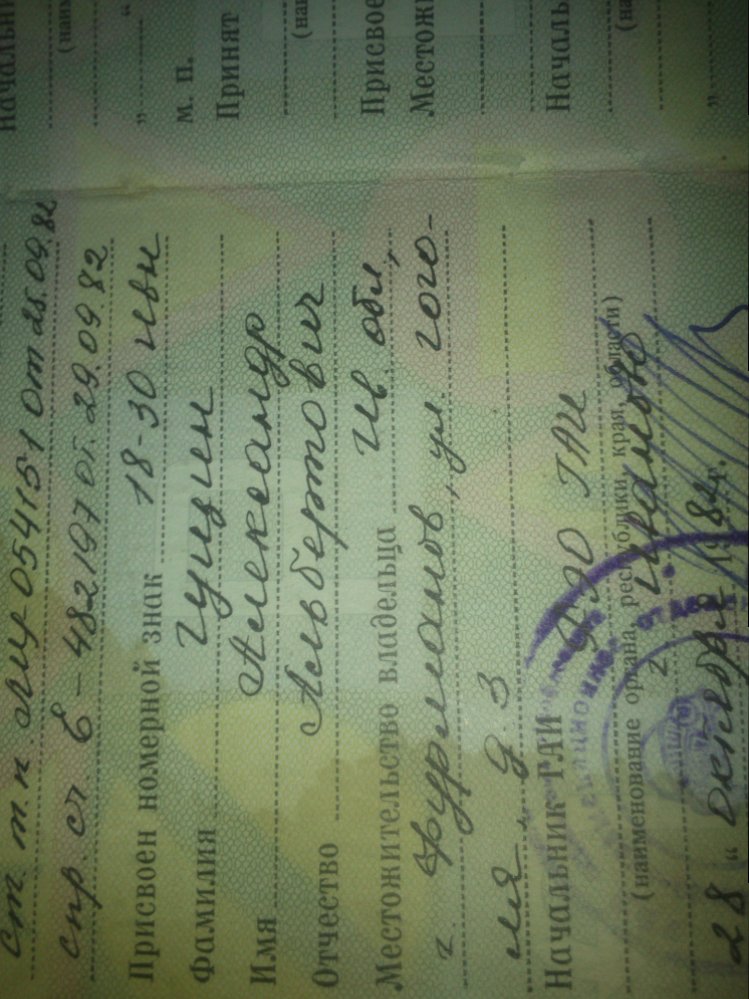 ст. т.п. 054151 от 25.09.82
спр. сч. Е-482197 от. 29.09.82
Присвоен номерной знак 18-30 ивн
Фамилия Гущин
Имя Александр
Отчество Альбертович
Местожительство владельца Ив. обл,
г. Фурманов, ул. Гого-
ля, д. 3
Начальник ГАИ РЭО ГАИ
(наименование органа, республики, края, области)
г. Иваново
28 " октября 1982г.
М. П.
Принят
Местож
Началь